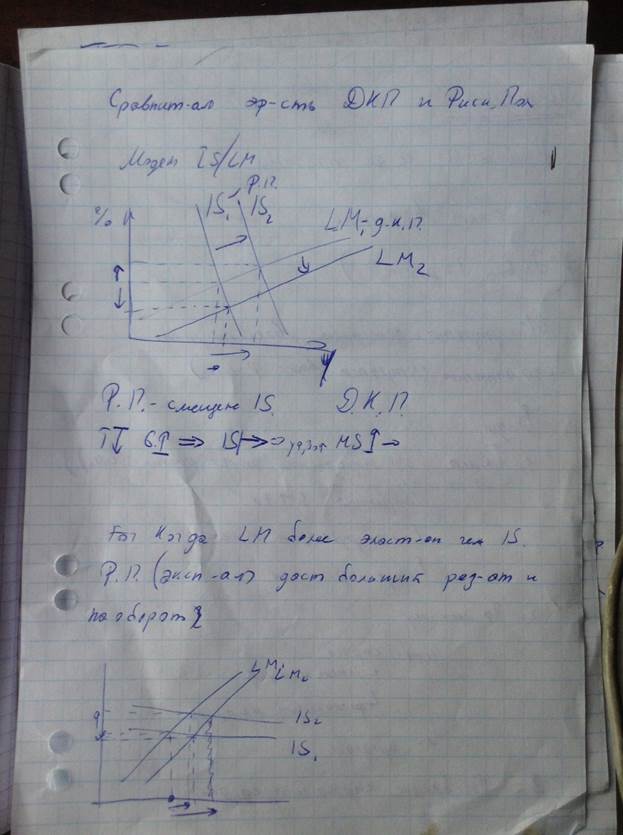 Сравнит-ая эф-сть ДКП и Фиск. Пол
Модел IS/LM
Р.П.
% IS₁ IS₂ LM₁ - д.к.п.
LM₂
Y
Р.П. - смещен IS. Д.К.П.
T↓ G↑ ⇒ IS→ MS↑ →
Когда LM более эласт-на чем IS.
Р.П. (эксп-ая) даст больший рез-ат и
наоборот
LM₁ LM₂
IS₂
IS₁